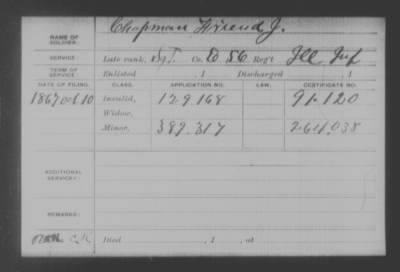 NAME OF SOLDIER: Chapman J.
SERVICE: Late rank, Sgt. Co. D 56 Reg't Ill Inf
TERM OF SERVICE: Enlisted , 1 Discharged , 1
DATE OF FILING. CLASS. APPLICATION NO. LAW. CERTIFICATE NO.
1867 Oct 10 Invalid, 129168 91.120
Widow,
Minor, 389.317 264.038
ADDITIONAL SERVICES:
REMARKS:
Died , 1 , at